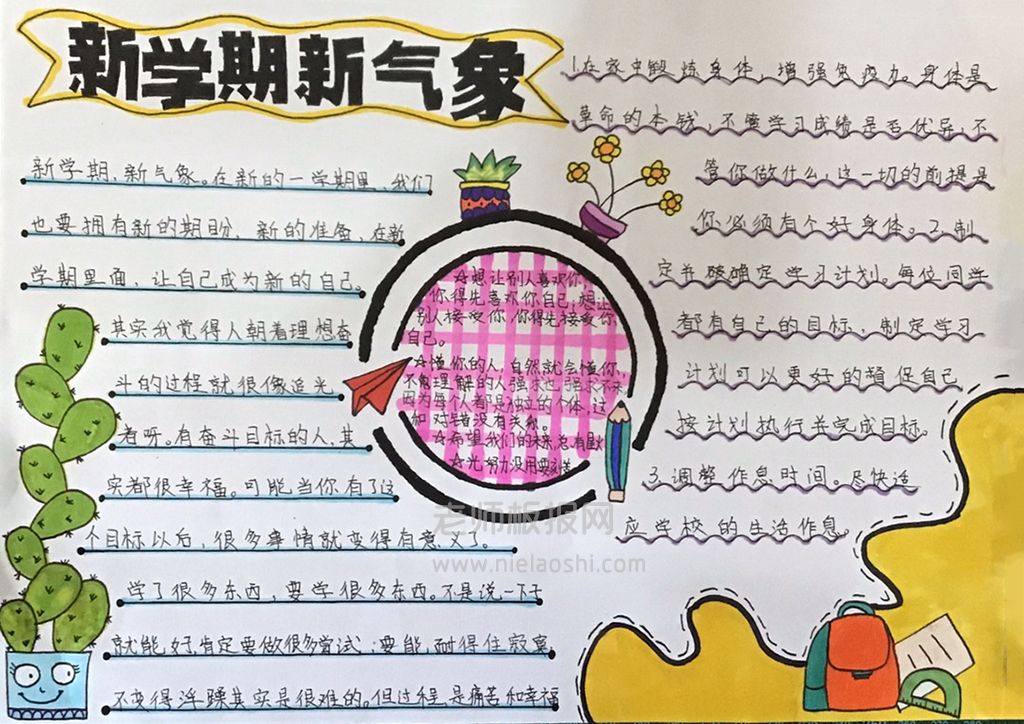 新学期新气象
新学期,新气象。在新的一学期里,我们
也要拥有新的期盼,新的准备,在新
学期里面,让自己成为新的自己。
其实我觉得人朝着理想奋
斗的过程就很像追光
者呀。有奋斗目标的人,其
实都很幸福。可能当你有了这
个目标以后,很多事情就变得有意义了。
学了很多东西,要学很多东西。不是说一下子
就能好肯定要做很多尝试;要能耐得住寂寞
不变得浮躁其实是很难的。但过程,是痛苦和幸福
☆想让别人喜欢你,
你得先喜欢你自己;想让
别人接受你,你得先接受你
自己。
☆懂你的人,自然就会懂你,
不能理解的人强求也强求不来
因为每个人都是独立的个体,这
和对错没有关系。
☆希望我们的未来,总有
☆光努力没用要
1.在家中锻炼身体,增强免疫力。身体是
革命的本钱,不管学习成绩是否优异,不
管你做什么,这一切的前提是
你必须有个好身体。2.制
定并确定学习计划。每位同学
都有自己的目标,制定学习
计划可以更好的督促自己
按计划执行并完成目标。
3.调整作息时间。尽快适
应学校的生活作息。
老师板报网
www.nielaoshi.com